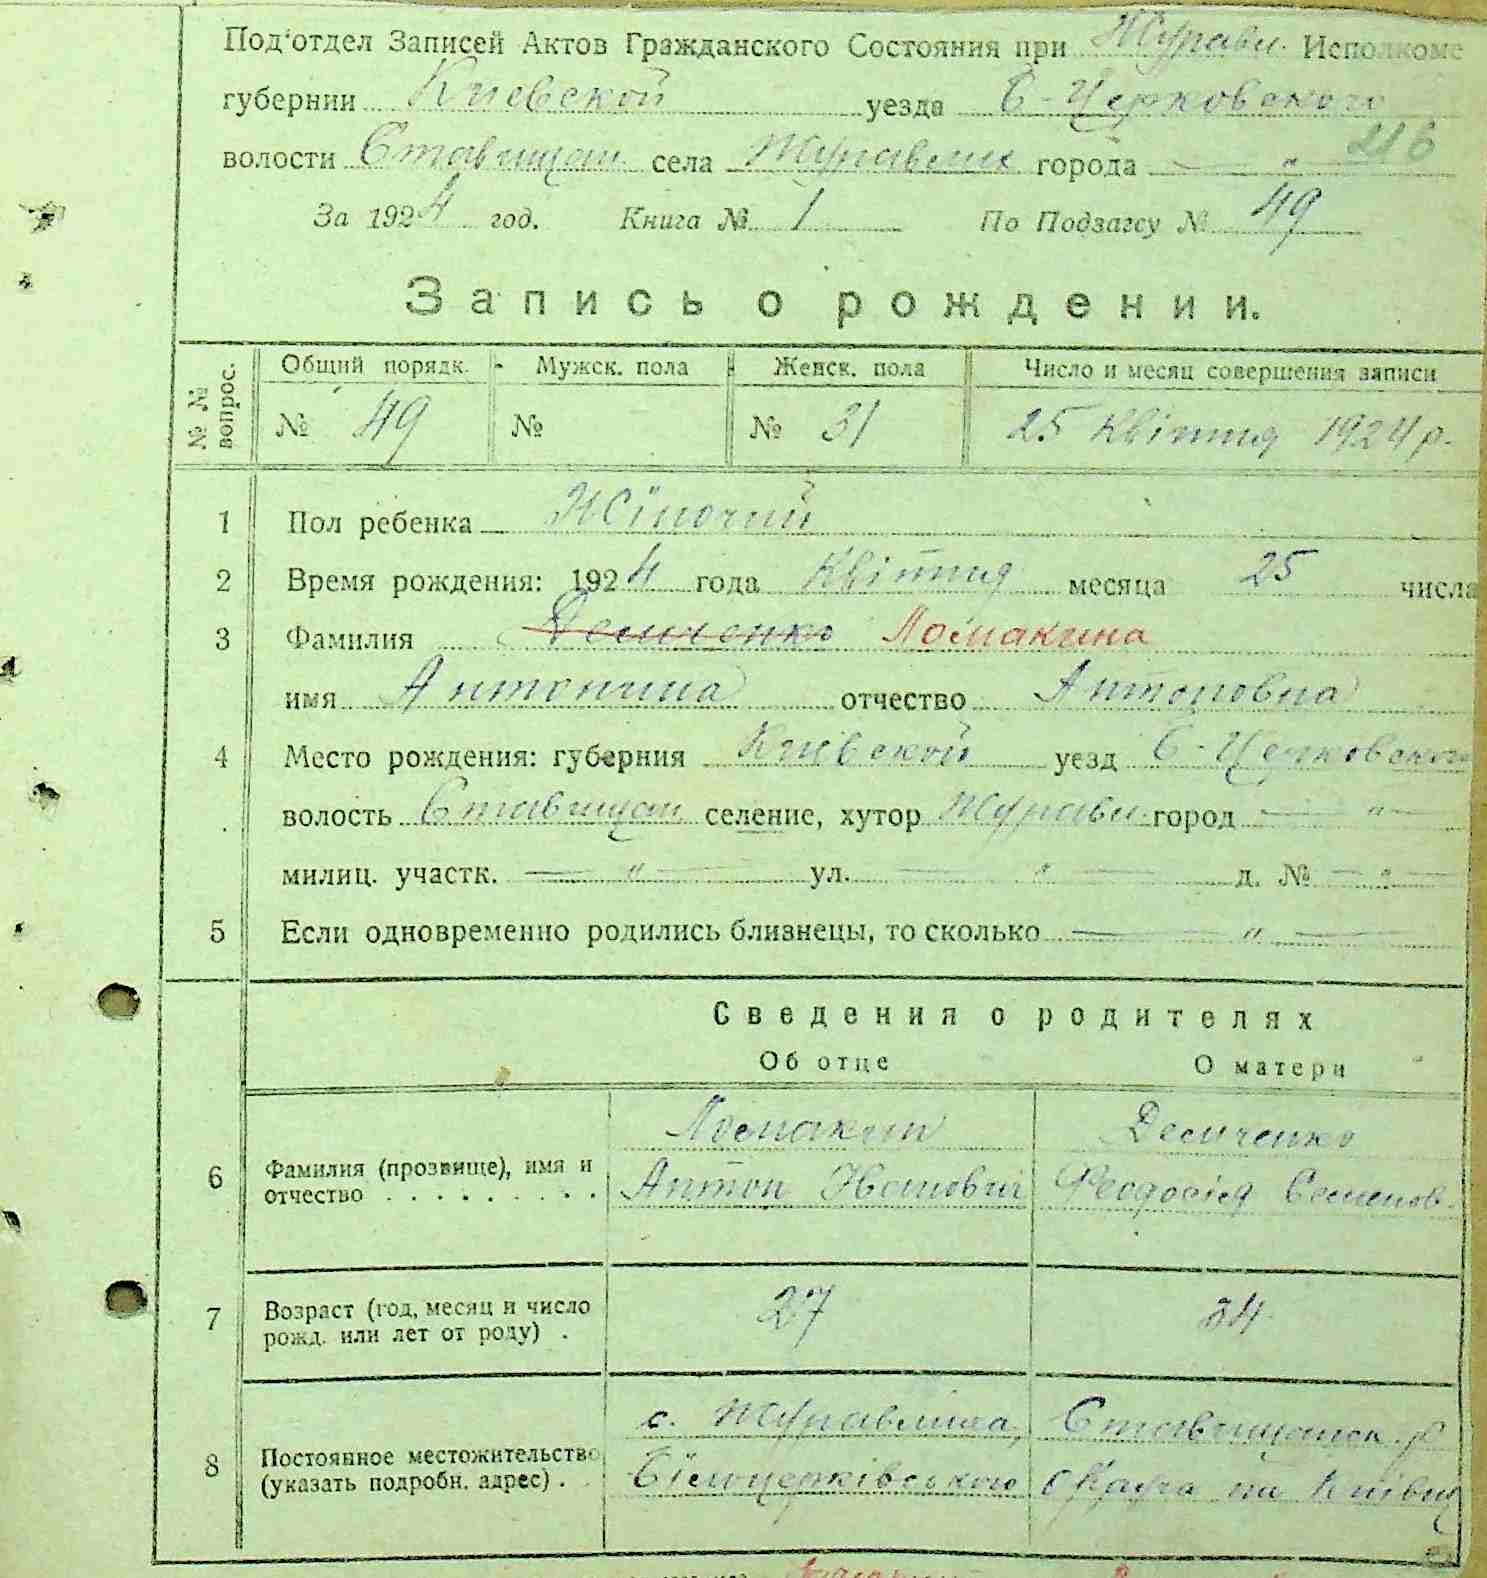 Под'отдел Записей Актов Гражданского Состояния при Журавл. Исполкоме
губернии Киевской уезда Б-Церковского
волости Ставищан села Журавлих города — " —
216
За 1924 год. Книга № 1 По Подзагсу № 49
Запись о рождении.
№ № вопрос. Общий порядк. Мужск. пола Женск. пола Число и месяц совершения записи
№ 49 № № 31 25 Квітня 1924 р.
1 Пол ребенка Жіночий
2 Время рождения: 1924 года Квітня месяца 25 числа
3 Фамилия Демченко Ломакина
имя Антонина отчество Антоновна
4 Место рождения: губерния Киевской уезд Б-Церковского
волость Ставищан селение, хутор Журавл. город — " —
милиц. участк. — " — ул. — " — д. № — " —
5 Если одновременно родились близнецы, то сколько — " —
Сведения о родителях
Об отце О матери
Ломакин Демченко
6 Фамилия (прозвище), имя и отчество . . . . . . . . . Антон Іванович Феодосія Семенов.
7 Возраст (год, месяц и число рожд. или лет от роду) . 27 24
с. Журавлиха, Ставищанск. р
8 Постоянное местожительство (указать подробн. адрес) . Білоцерківського округа на Київщ